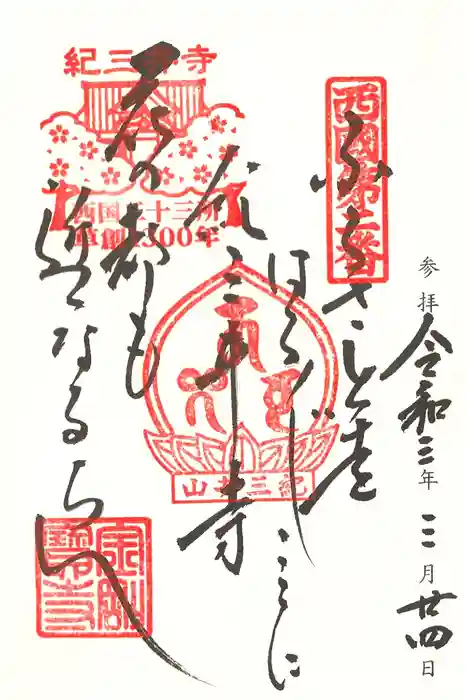 参拝 令和三年 三月廿四日
西國第二番
ふるさとを
はる〴〵ここに
紀三井寺
花の都も
近くなるらん
紀三井寺
西国三十三所
草創1300年
紀三井山
金剛寶寺